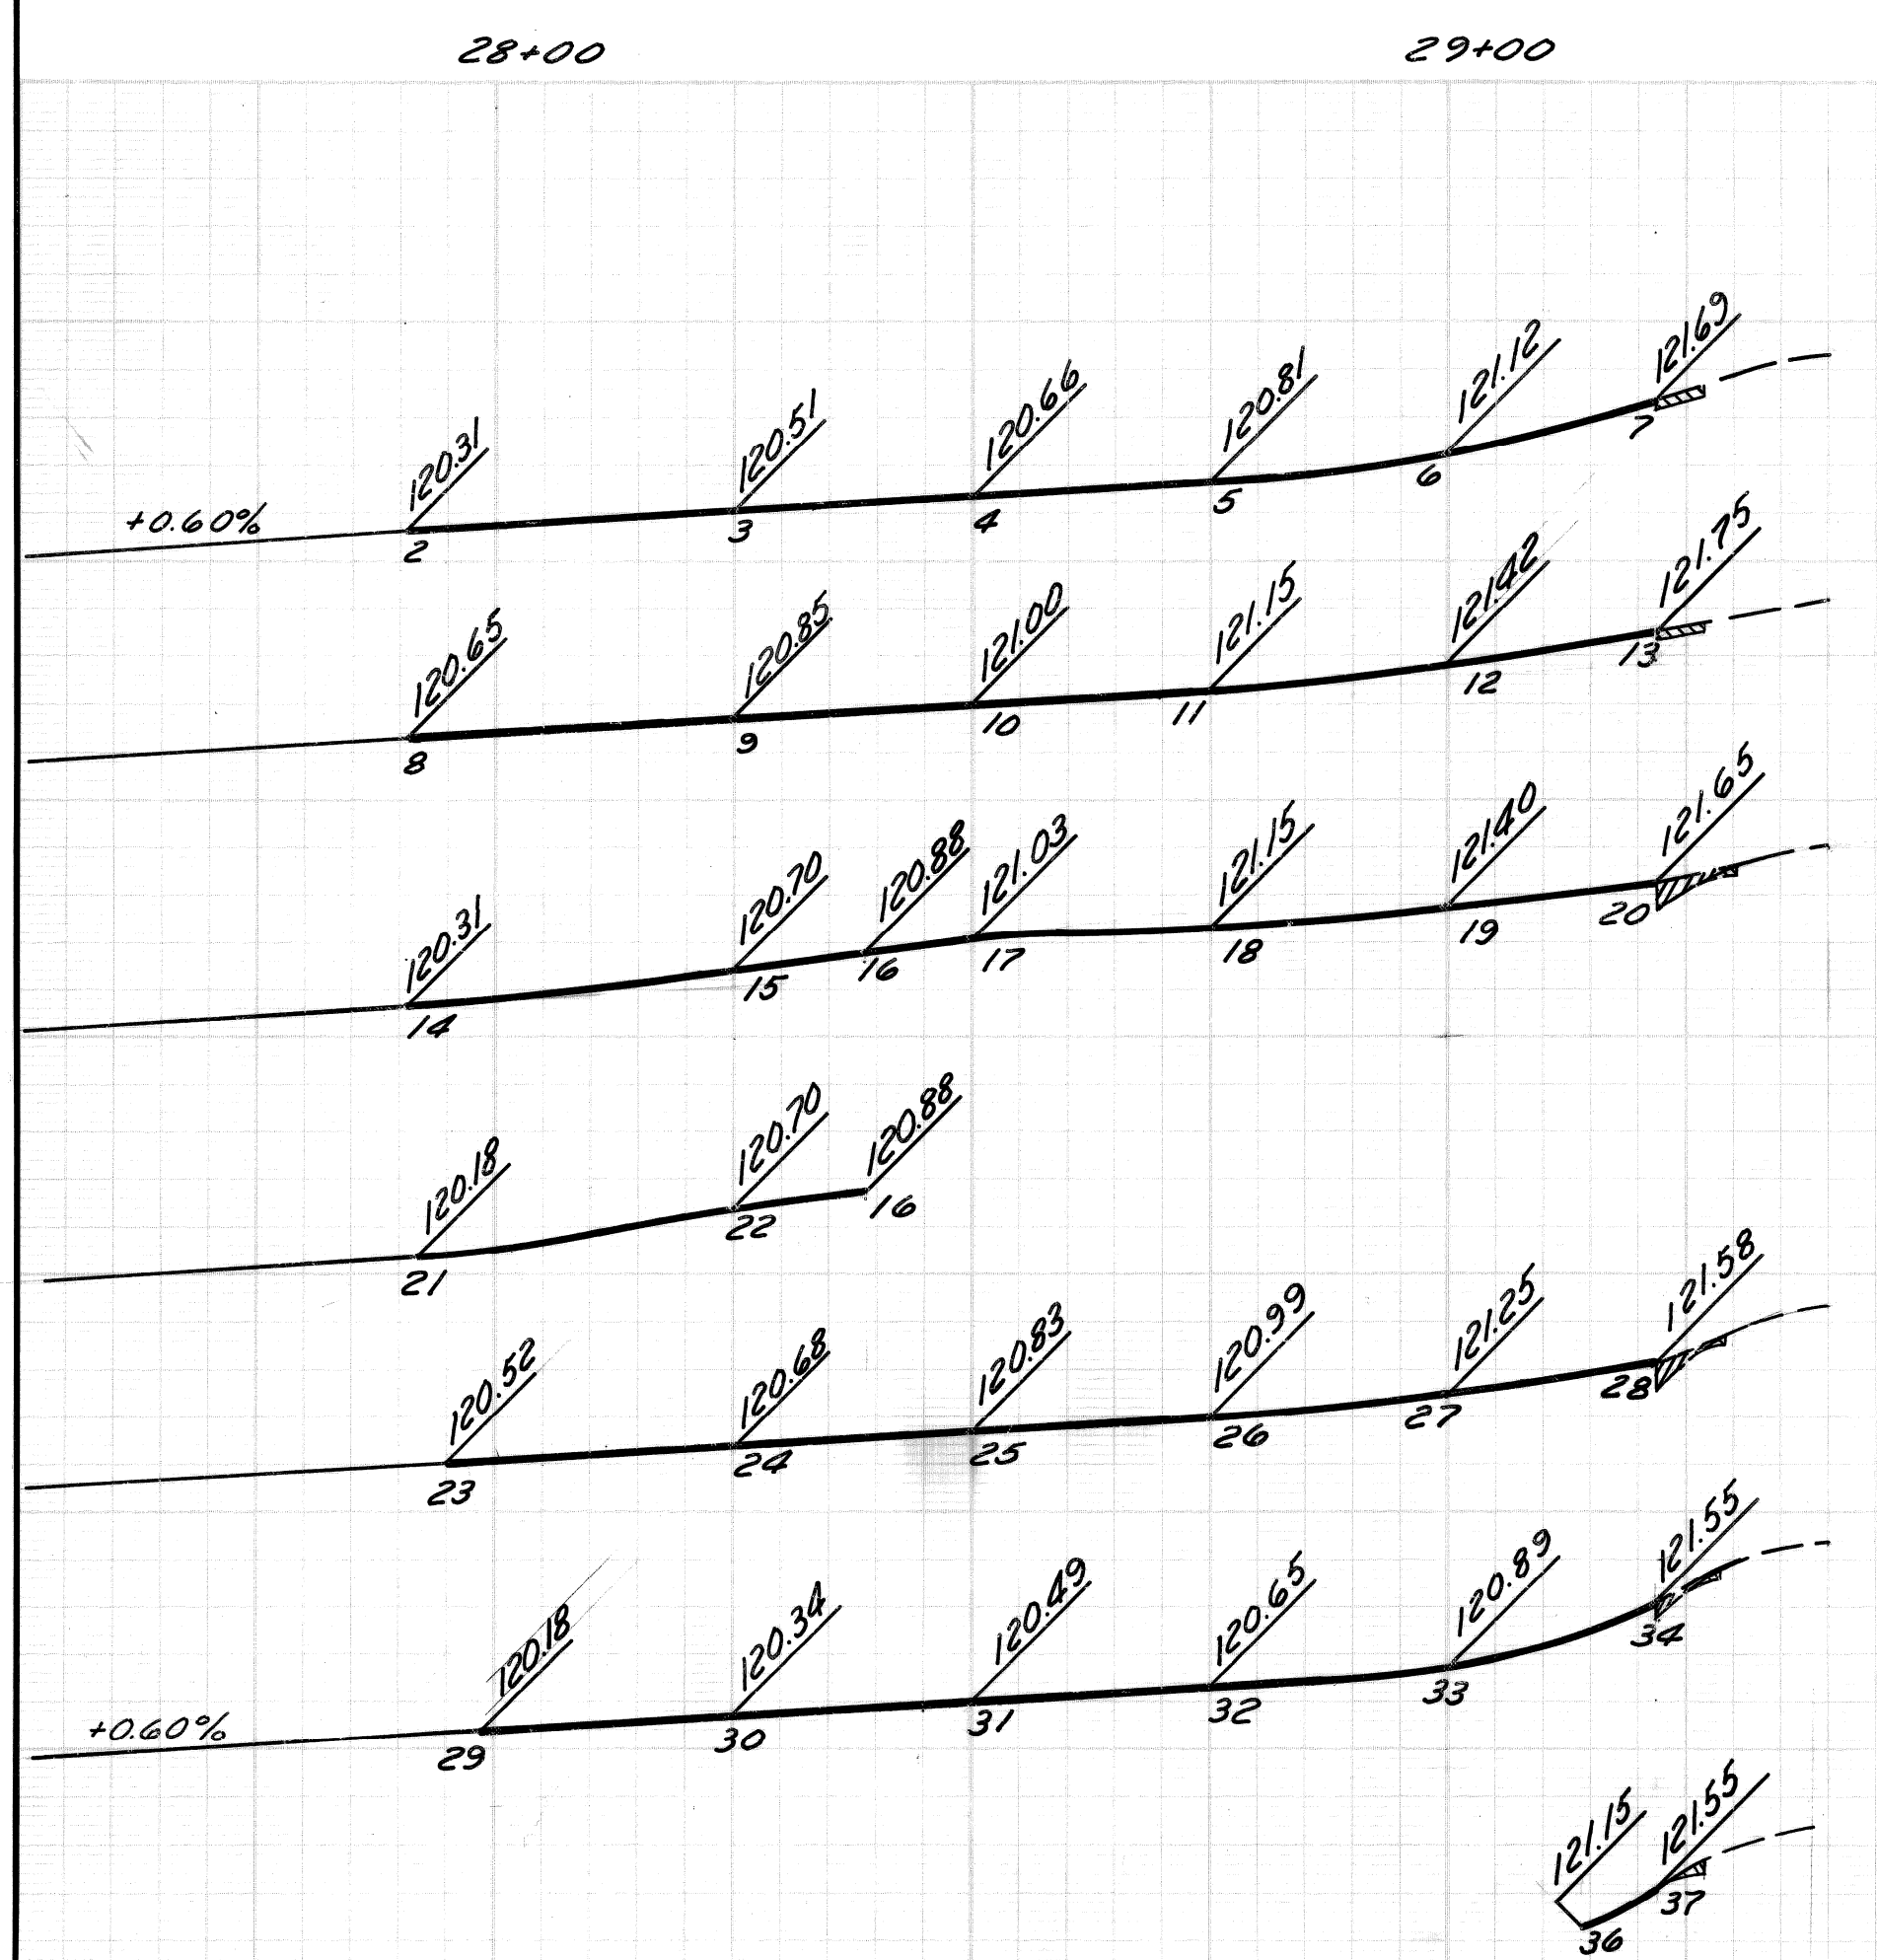 28+00 29+00
120.31 120.51 120.66 120.81 121.12 121.69
+0.60%
2 3 4 5 6 7
120.65 120.85 121.00 121.15 121.42 121.75
8 9 10 11 12 13
120.31 120.70 120.88 121.03 121.15 121.40 121.65
14 15 16 17 18 19 20
120.18 120.70 120.88
21 22 16
120.52 120.68 120.83 120.99 121.25 121.58
23 24 25 26 27 28
120.18 120.34 120.49 120.65 120.89 121.55
+0.60%
29 30 31 32 33 34
121.15 121.55
36 37